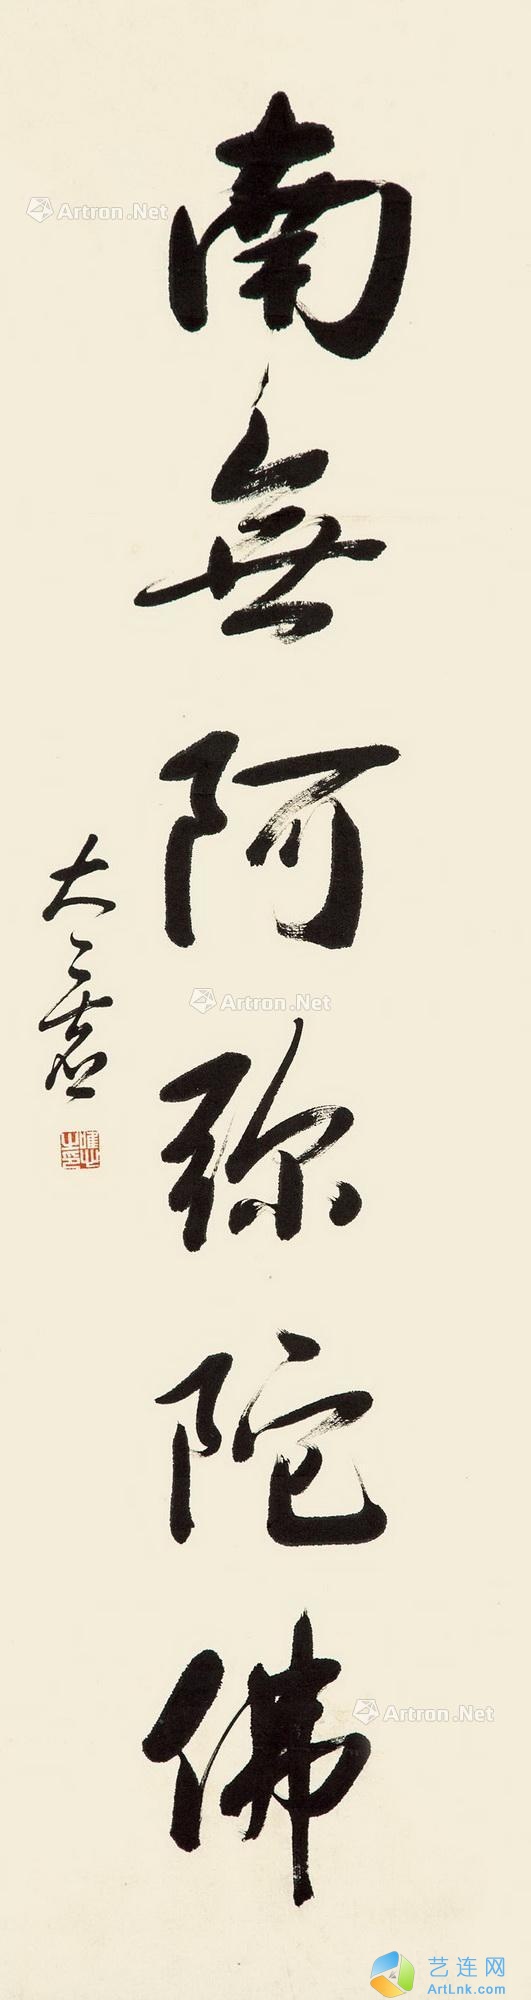 南無阿弥陀佛
Artron.Net
Artron.Net
Artron.Net
艺连网
ArtLnk.com